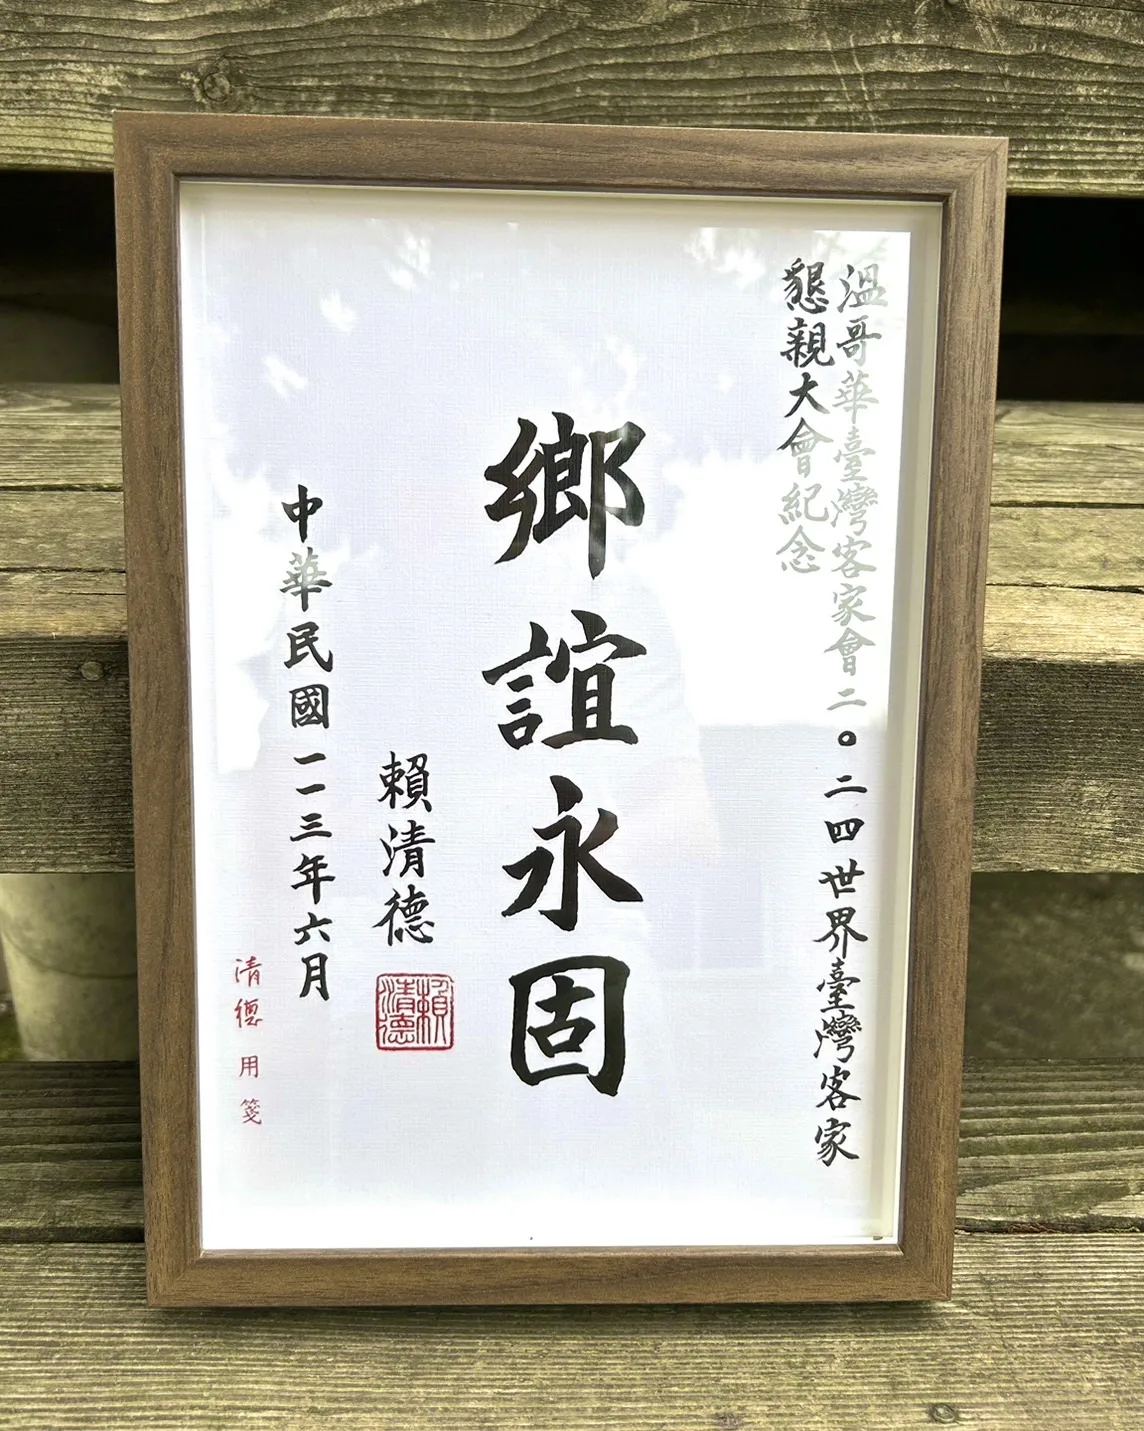 溫哥華臺灣客家會二〇二四世界臺灣客家
懇親大會紀念
鄉誼永固
賴清德
賴清德
中華民國一一三年六月
清德用箋